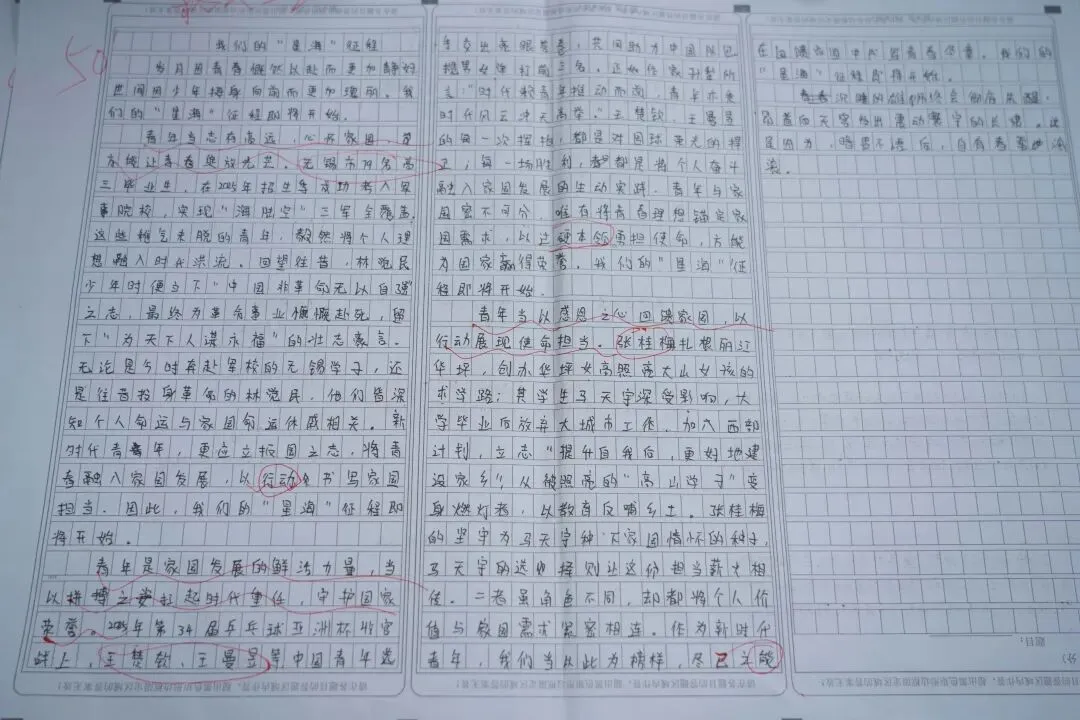 50
我们的“星海”征程
岁月因青春慨然以赴而更加静好
世间因少年挺身向前而更加瑰丽。我
们的“星海”征程即将开始。
青年当志存高远，心怀家国，
方能让青春绽放光芒。无锡市79名高
三毕业生，在2025年招生季成功考入军
事院校，实现“海陆空”三军全覆盖，
这些稚气未脱的青年，毅然将个人理
想融入时代洪流。回望往昔，林觉民
少年时便立下“中国非革命无以自强”
之志，最终为革命事业慷慨赴死，留
下“为天下人谋永福”的壮志豪言。
无论是今时奔赴军校的无锡学子，还
是往昔投身革命的林觉民，他们皆深
知个人命运与家国命运休戚相关。新
时代青年，更应立报国之志，将青
春融入家国发展，以行动书写家国
担当。因此，我们的“星海”征程即
将开始。
青年是家国发展的鲜活力量，当
以拼搏之姿扛起时代重任，守护国家
荣誉。2025年第34届乒乓球亚洲杯收官
战上，王楚钦、王曼昱等中国青年选
手交出亮眼答卷，共同助力中国队包
揽男女单打前三名。正如作家孙犁所
言：“时代赖青年推动而前，青年亦乘
时代风云冲天高举。”王楚钦、王曼昱
的每一次挥拍，都是对国球荣光的捍
卫，每一场胜利，都是将个人奋斗
融入家国发展的生动实践。青年与家
国密不可分，唯有将青春理想锚定家
国需求，以过硬本领勇担使命，方能
为国家赢得荣誉。我们的“星海”征
程即将开始。
青年当以感恩之心回馈家国，以
行动展现使命担当。张桂梅扎根丽江
华坪，创办华坪女高照亮大山女孩的
求学路；其学生马天宇深受影响，大
学毕业后放弃大城市工作，加入西部
计划，立志“提升自我后，更好地建
设家乡”！从被照亮的“高山学子”变
身燃灯者，以教育反哺乡土。张桂梅
的坚守为马天宇种下家国情怀的种子，
马天宇的选择则让这份担当薪火相
传。二者虽角色不同，却都将个人价
值与家国需求紧密相连。作为新时代
青年，我们当以此为榜样，尽己之能
在
中
青春华章。我们的
“星海”征程即将开始。
沉睡的雄狮终会彻底苏醒，
向着
天空发出震动寰宇的长啸。这
是因为，
后，自有春
。
题目：